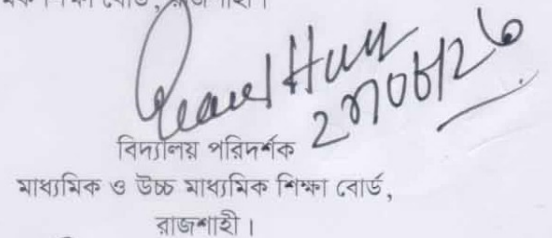 শিক্ষা বোর্ড, রাজশাহী।
বিদ্যালয় পরিদর্শক
মাধ্যমিক ও উচ্চ মাধ্যমিক শিক্ষা বোর্ড,
রাজশাহী।